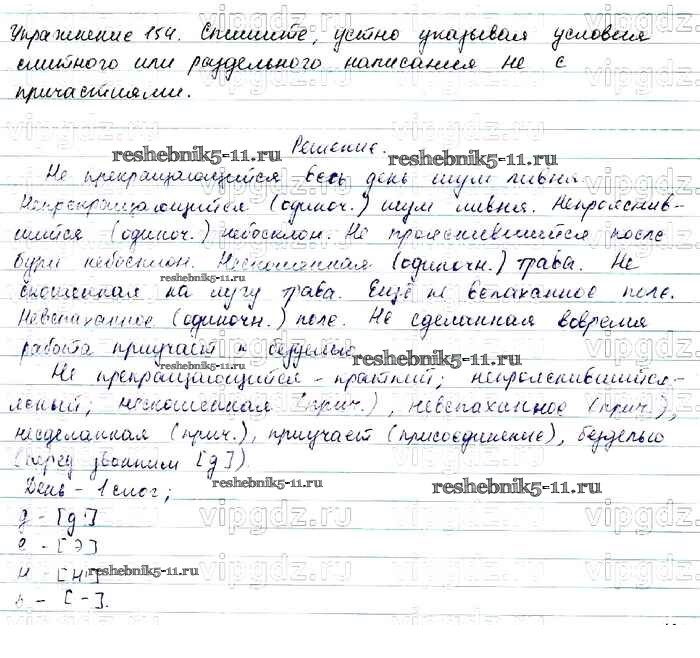 Упражнение 154. Спишите, устно указывая условия
слитного или раздельного написания не с
причастиями.
Решение.
reshebnik5-11.ru
reshebnik5-11.ru
Не прекращающийся весь день шум ливня.
Непрекращающийся (одиноч.) шум ливня. Непрояснив-
шийся (одиноч.) небосклон. Не прояснившийся после
бури небосклон. Нескошенная (одиночн.) трава. Не
reshebnik5-11.ru
скошенная на лугу трава. Ещё не вспаханное поле.
Невспаханное (одиночн.) поле. Не сделанная вовремя
работа приучает к безделью.
reshebnik5-11.ru
reshebnik5-11.ru
Не прекращающийся - краткий; непрояснившийся-
ясный; нескошенная (прич.), невспаханное (прич.),
несделанная (прич.), приучает (присоединение), безделью
(перед звонким [д]).
День - 1 слог;
reshebnik5-11.ru
reshebnik5-11.ru
д - [д']
е - [э]
н - [н']
reshebnik5-11.ru
ь - [-].
vipgdz.ru